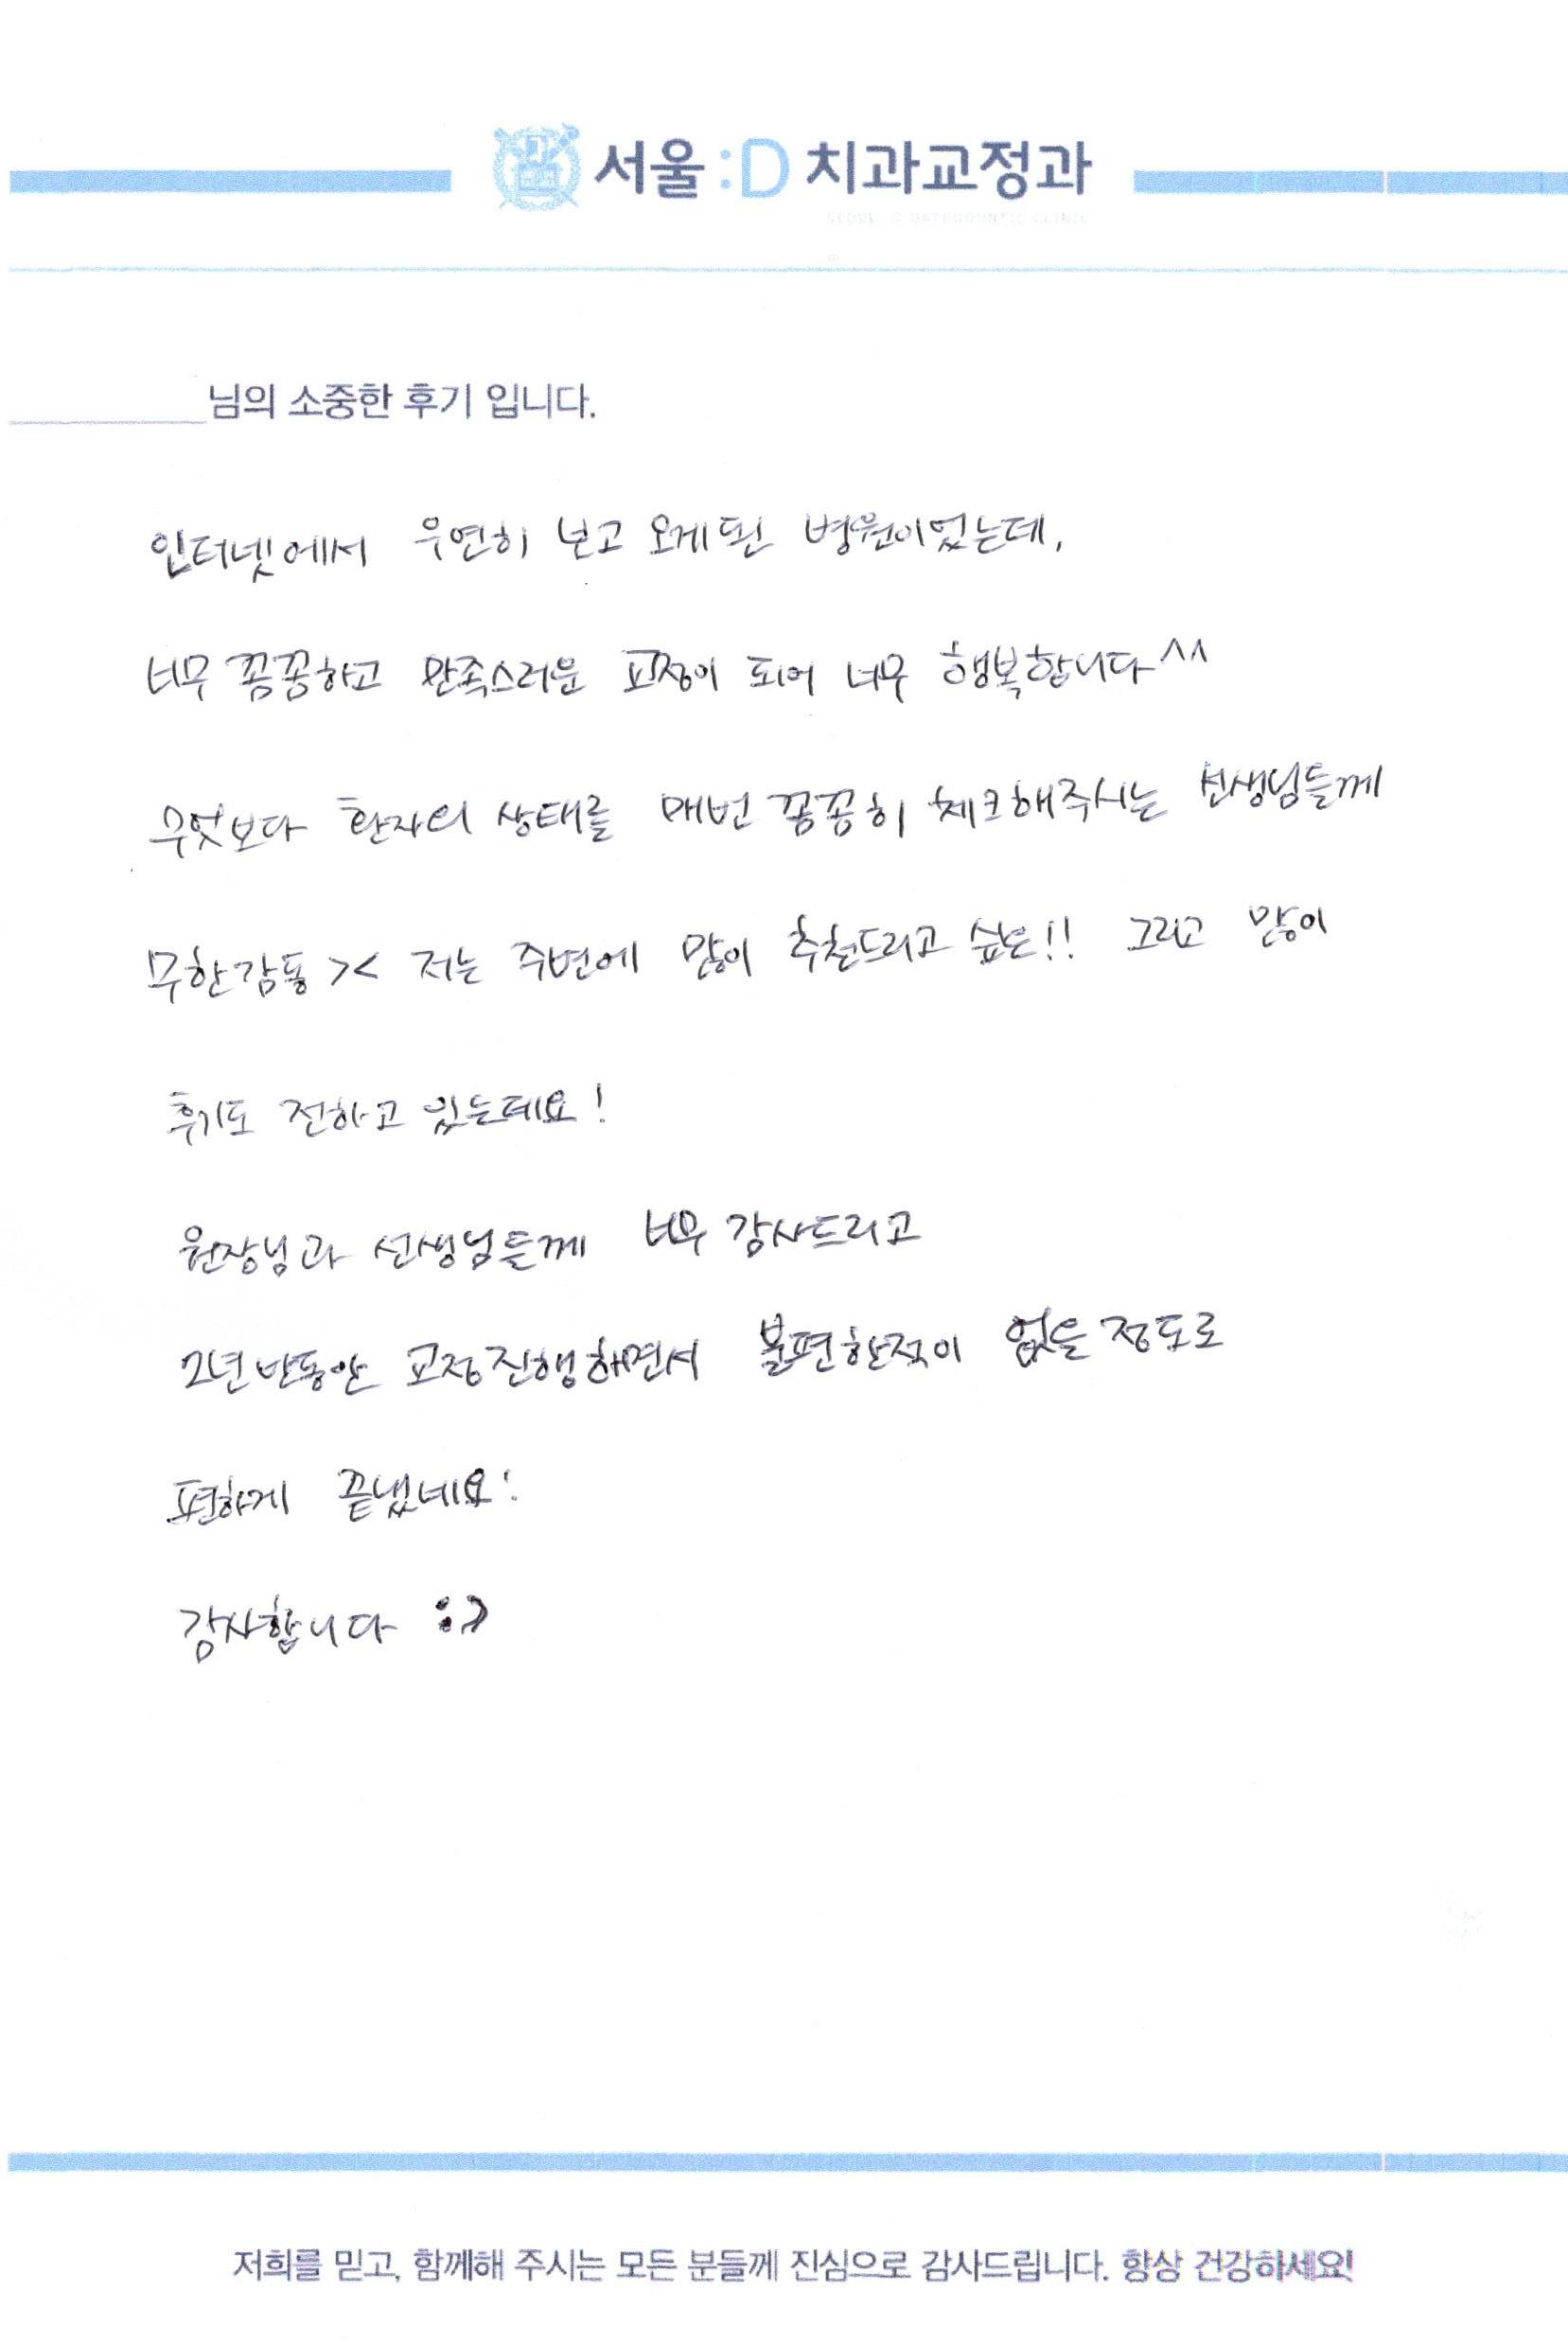 서울:D 치과교정과
SEOUL :D ORTHODONTIC CLINIC
님의 소중한 후기 입니다.
인터넷에서 우연히 보고 오게된 병원이었는데,
너무 꼼꼼하고 만족스러운 교정이 되어 너무 행복합니다^^
무엇보다 환자의 상태를 매번 꼼꼼히 체크해주시는 선생님들께
무한감동>< 저는 주변에 많이 추천드리고 싶은!! 그리고 많이
후기도 전하고 있는데요!
원장님과 선생님들께 너무 감사드리고
2년반동안 교정진행하면서 불편한적이 없을정도로
편하게 끝냈네요!
감사합니다 :)
저희를 믿고, 함께해 주시는 모든 분들께 진심으로 감사드립니다. 항상 건강하세요!